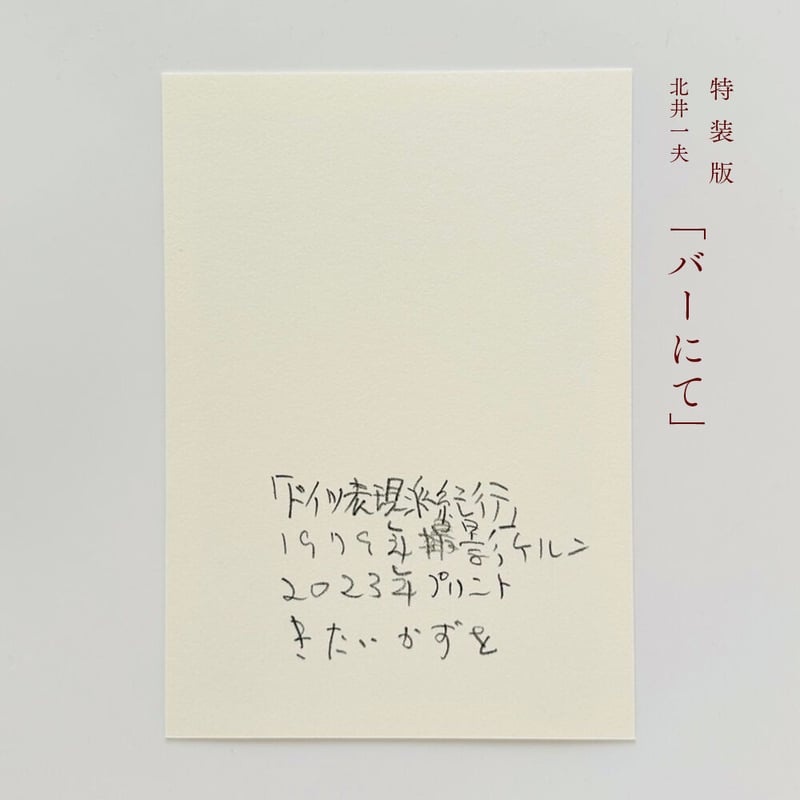 特装版
北井一夫
「バーにて」
「ドイツ表現派紀行」
1979年撮影ケルン
2023年プリント
きたいかずを